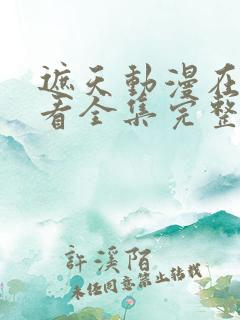 遮天動漫在
看全集完整
許溪陌
未经同意禁止转载